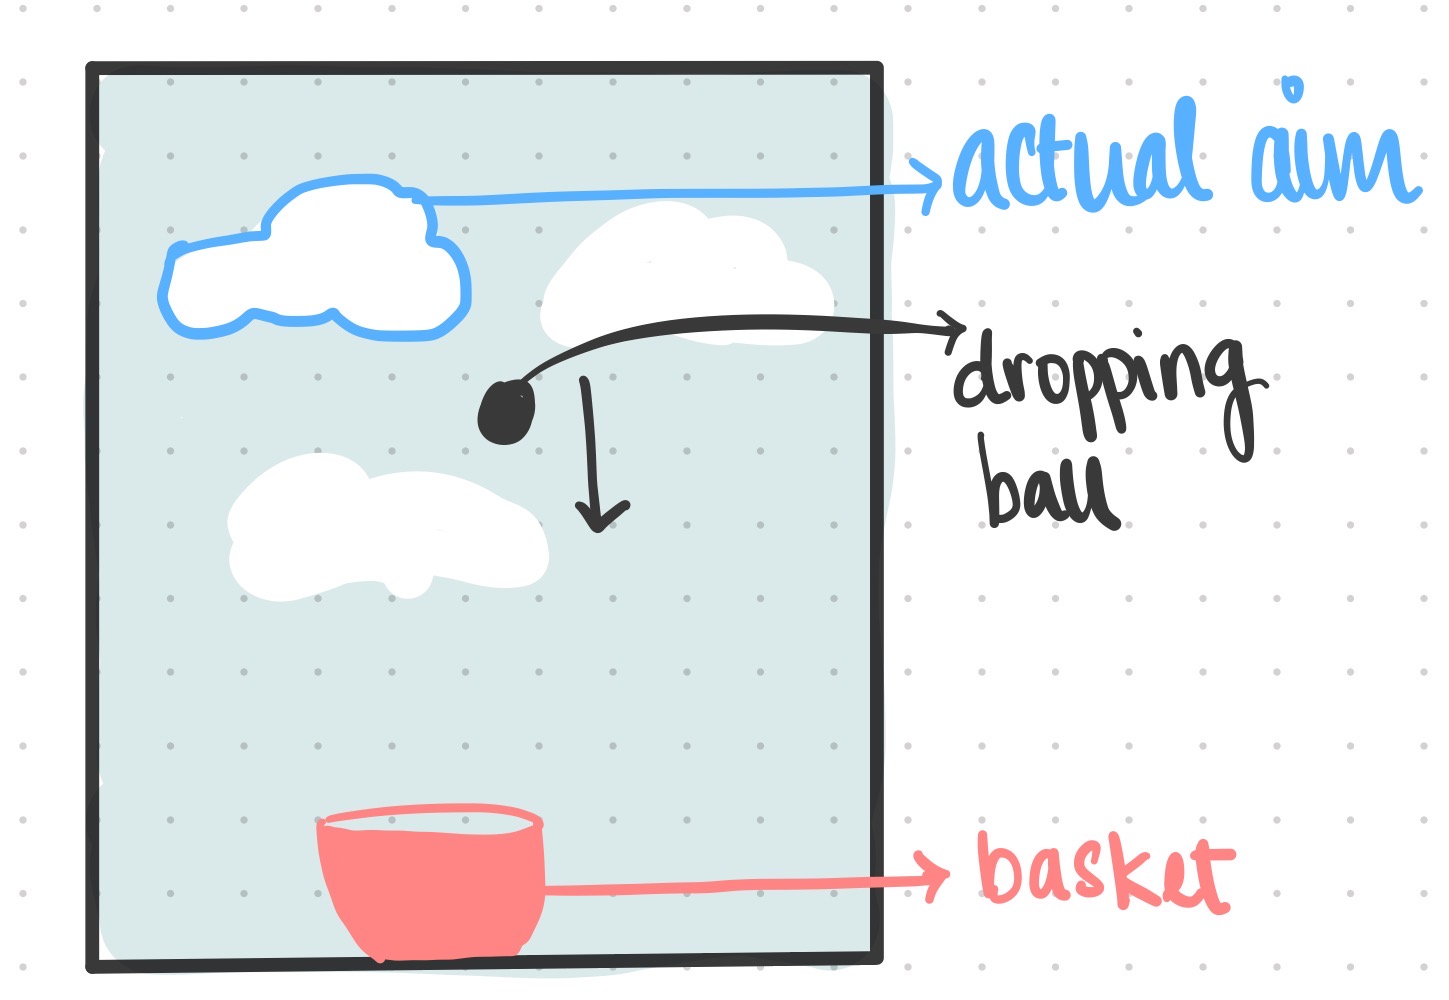 actual aim
dropping
ball
basket